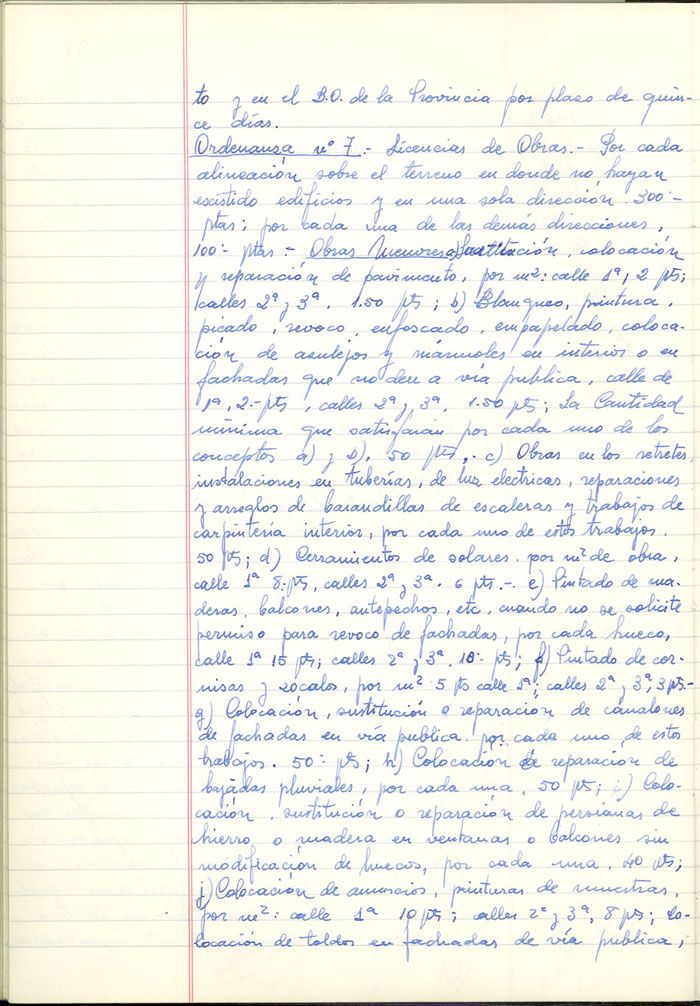 to y en el B.O. de la Provincia por plazo de quin-
ce días.
Ordenanza nº 7.- Licencias de Obras.- Por cada
alineación sobre el terreno en donde no hayan
existido edificios y en una sola dirección. 300'-
ptas; por cada una de las demás direcciones,
100'- ptas.- Obras Menores a) Sustitución, colocación
y reparación de pavimento, por m2: calle 1ª, 2 pts;
calles 2ª y 3ª. 1.50 pts; b) Blanqueo, pintura,
picado, revoco, enfoscado, empapelado, coloca-
ción de azulejos y mármoles en interior o en
fachadas que no den a vía publica, calle de
1ª, 2.- pts, calles 2ª y 3ª. 1.50 pts; La Cantidad
mínima que satisfarán por cada uno de los
conceptos a) y b). 50 pts,. c) Obras en los retretes,
instalaciones en tuberías, de luz electricas, reparaciones
y arreglos de barandillas de escaleras y trabajos de
carpintería interior, por cada uno de estos trabajos.
50 pts; d) Cerramientos de solares. por m2 de obra,
calle 1ª 8.- pts, calles 2ª y 3ª. 6 pts.-. e) Pintado de ma-
deras, balcones, antepechos, etc, cuando no se solicite
permiso para revoco de fachadas, por cada hueco,
calle 1ª 15 pts; calles 2ª y 3ª, 10'- pts; f) Pintado de cor-
nisas y zocalos, por m2 5 pts calle 1ª; calles 2ª y 3ª, 3 pts.-
g) Colocación, sustitución o reparación de canalones
de fachadas en vía publica. por cada uno de estos
trabajos. 50'- pts; h) Colocación de reparación de
bajadas pluviales, por cada una, 50 pts; i) Colo-
cación, sustitución o reparación de persianas de
hierro o madera en ventanas o balcones sin
modificación de huecos, por cada una, 40 pts;
j) Colocación de anuncios, pinturas de muestras,
por m2: calle 1ª 10 pts; calles 2ª y 3ª, 8 pts; Co-
locación de toldos en fachadas de vía publica,